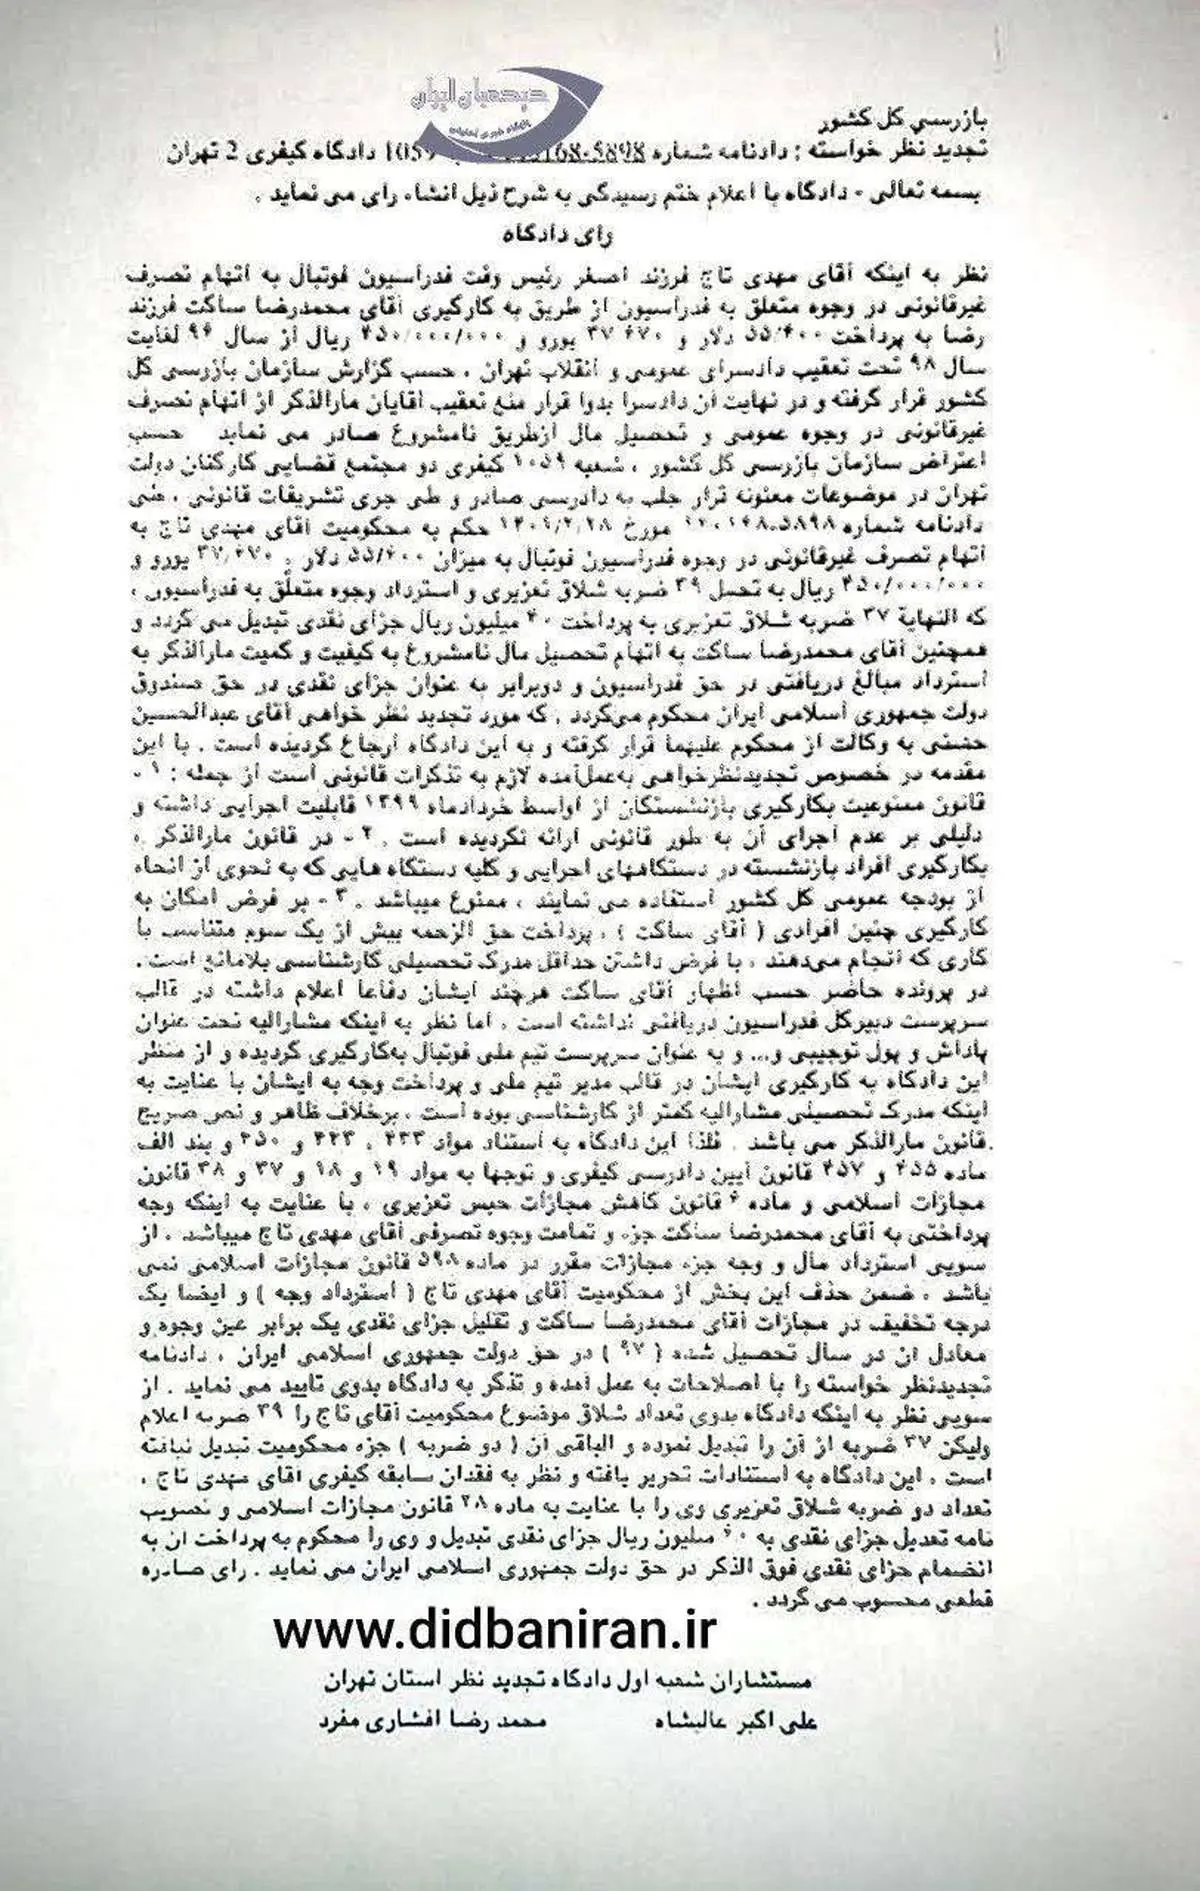 دیدهبان ایران
بازرسی کل کشور
تجدید نظر خواسته : دادنامه شماره 1059 دادگاه کیفری 2 تهران
بسمه تعالی - دادگاه با اعلام ختم رسیدگی به شرح ذیل انشاء رای می نماید .
رای دادگاه
نظر به اینکه آقای مهدی تاج فرزند اصغر رئیس وقت فدراسیون فوتبال به اتهام تصرف
غیرقانونی در وجوه متعلق به فدراسیون از طریق به کارگیری آقای محمدرضا ساکت فرزند
رضا به پرداخت ۵۵/۴۰۰ دلار و ۳۷ ۶۷۰ یورو و ۴۵۰/۰۰۰/۰۰۰ ریال از سال ۹۶ لغایت
سال ۹۸ تحت تعقیب دادسرای عمومی و انقلاب تهران ، حسب گزارش سازمان بازرسی کل
کشور قرار گرفته و در نهایت آن دادسرا بدوا قرار منع تعقیب آقایان مارالذکر از اتهام تصرف
غیرقانونی در وجوه عمومی و تحصیل مال ازطریق نامشروع صادر می نماید حسب
اعتراض سازمان بازرسی کل کشور ، شعبه ۱۰۵۹ کیفری دو مجتمع قضایی کارکنان دولت
تهران در موضوعات معنونه قرار جلب به دادرسی صادر و طی جری تشریفات قانونی ، طی
دادنامه شماره مورخ حکم به محکومیت آقای مهدی تاج به
اتهام تصرف غیرقانونی در وجوه فدراسیون فوتبال به میزان ۵۵/۴۰۰ دلار ، ۳۷/۶۷۰ یورو و
۴۵۰/۰۰۰/۰۰۰ ریال به تحمل ۳۹ ضربه شلاق تعزیری و استرداد وجوه متعلق به فدراسیون ،
که النهایة ۳۷ ضربه شلاق تعزیری به پرداخت ۴۰ میلیون ریال جزای نقدی تبدیل می گردد و
همچنین آقای محمدرضا ساکت به اتهام تحصیل مال نامشروع به کیفیت و کمیت مارالذکر به
استرداد مبالغ دریافتی در حق فدراسیون و دوبرابر به عنوان جزای نقدی در حق صندوق
دولت جمهوری اسلامی ایران محکوم می‌گردد . که مورد تجدید نظر خواهی آقای عبدالحسین
به وکالت از محکوم علیهما قرار گرفته و به این دادگاه ارجاع گردیده است . با این
مقدمه در خصوص تجدیدنظرخواهی به‌عمل‌آمده لازم به تذکرات قانونی است از جمله : ۱ -
قانون ممنوعیت بکارگیری بازنشستگان از اواسط خردادماه ۱۳۹۹ قابلیت اجرایی داشته و
دلیلی بر عدم اجرای آن به طور قانونی ارائه نگردیده است . ۲ - در قانون مارالذکر ،
بکارگیری افراد بازنشسته در دستگاههای اجرایی و کلیه دستگاه هایی که به نحوی از انحاء
از بودجه عمومی کل کشور استفاده می نمایند ، ممنوع میباشد . ۳ - بر فرض امکان به
کارگیری چنین افرادی ( آقای ساکت ) ، پرداخت حق الزحمه بیش از یک سوم متناسب با
کاری که انجام می‌دهند ، با فرض داشتن حداقل مدرک تحصیلی کارشناسی بلامانع است .
در پرونده حاضر حسب اظهار آقای ساکت هرچند ایشان دفاعا اعلام داشته در قالب
سرپرست دبیرکل فدراسیون دریافتی نداشته است ، اما نظر به اینکه مشارالیه تحت عنوان
پاداش و پول توجیبی و... و به عنوان سرپرست تیم ملی فوتبال به‌کارگیری گردیده و از منظر
این دادگاه به کارگیری ایشان در قالب مدیر تیم ملی و پرداخت وجه به ایشان با عنایت به
اینکه مدرک تحصیلی مشارالیه کمتر از کارشناسی بوده است ، برخلاف ظاهر و نص صریح
قانون مارالذکر می باشد . فلذا این دادگاه به استناد مواد ۴۳۳ ، ۴۴۳ و ۴۵۰ و بند الف
ماده ۴۵۵ و ۴۵۷ قانون آیین دادرسی کیفری و توجها به مواد ۱۹ و ۱۸ و ۳۷ و ۳۸ قانون
مجازات اسلامی و ماده ۶ قانون کاهش مجازات حبس تعزیری ، با عنایت به اینکه وجه
پرداختی به آقای محمدرضا ساکت جزء و تمامت وجوه تصرفی آقای مهدی تاج میباشد ، از
سویی استرداد مال و وجه جزء مجازات مقرر در ماده ۵۹۸ قانون مجازات اسلامی نمی
باشد ، ضمن حذف این بخش از محکومیت آقای مهدی تاج ( استرداد وجه ) و ایضا یک
درجه تخفیف در مجازات آقای محمدرضا ساکت و تقلیل جزای نقدی یک برابر عین وجوه و
معادل آن در سال تحصیل شده ( ۹۷ ) در حق دولت جمهوری اسلامی ایران ، دادنامه
تجدیدنظر خواسته را با اصلاحات به عمل آمده و تذکر به دادگاه بدوی تایید می نماید . از
سویی نظر به اینکه دادگاه بدوی تعداد شلاق موضوع محکومیت آقای تاج را ۳۹ ضربه اعلام
ولیکن ۳۷ ضربه از آن را تبدیل نموده و الباقی آن ( دو ضربه ) جزء محکومیت تبدیل نیافته
است ، این دادگاه به استنادات تحریر یافته و نظر به فقدان سابقه کیفری آقای مهدی تاج ،
تعداد دو ضربه شلاق تعزیری وی را با عنایت به ماده ۲۸ قانون مجازات اسلامی و تصویب
نامه تعدیل جزای نقدی به ۶۰ میلیون ریال جزای نقدی تبدیل و وی را محکوم به پرداخت آن به
انضمام جزای نقدی فوق الذکر در حق دولت جمهوری اسلامی ایران می نماید . رای صادره
قطعی محسوب می گردد .
www.didbaniran.ir
مستشاران شعبه اول دادگاه تجدید نظر استان تهران
علی اکبر عالیشاه محمد رضا افشاری مفرد